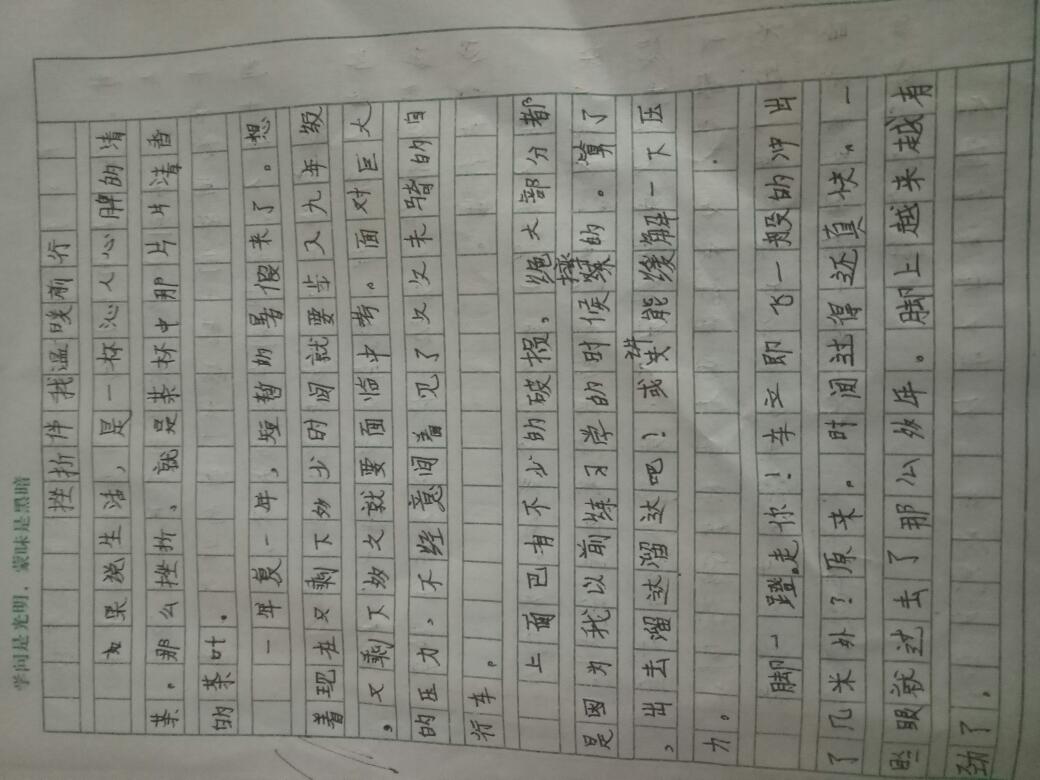 学问是光明，蒙昧是黑暗
挫折伴我温暖前行
如果说生活，是一杯沁人心脾的清
茶。那么挫折、就是茶杯中那片片清香
的茶叶。
一年复一年，短暂的暑假来了。想
着现在又剩下多少时间就要步入九年级
，又剩下多久就要面临中考。面对巨大
的压力、不经意间看见了久久未骑的自
行车。
上面已有不少的破损，绝大部分都
是因为我以前练习学的时候摔的。算了
，出去溜达溜达吧！或许能缓解一下压
力。
脚一蹬，走你！车立即飞一般的冲出
了几米外？原来。时间过得还真快。一
眨眼就过去了那么多年。脚上越来越有
劲了。